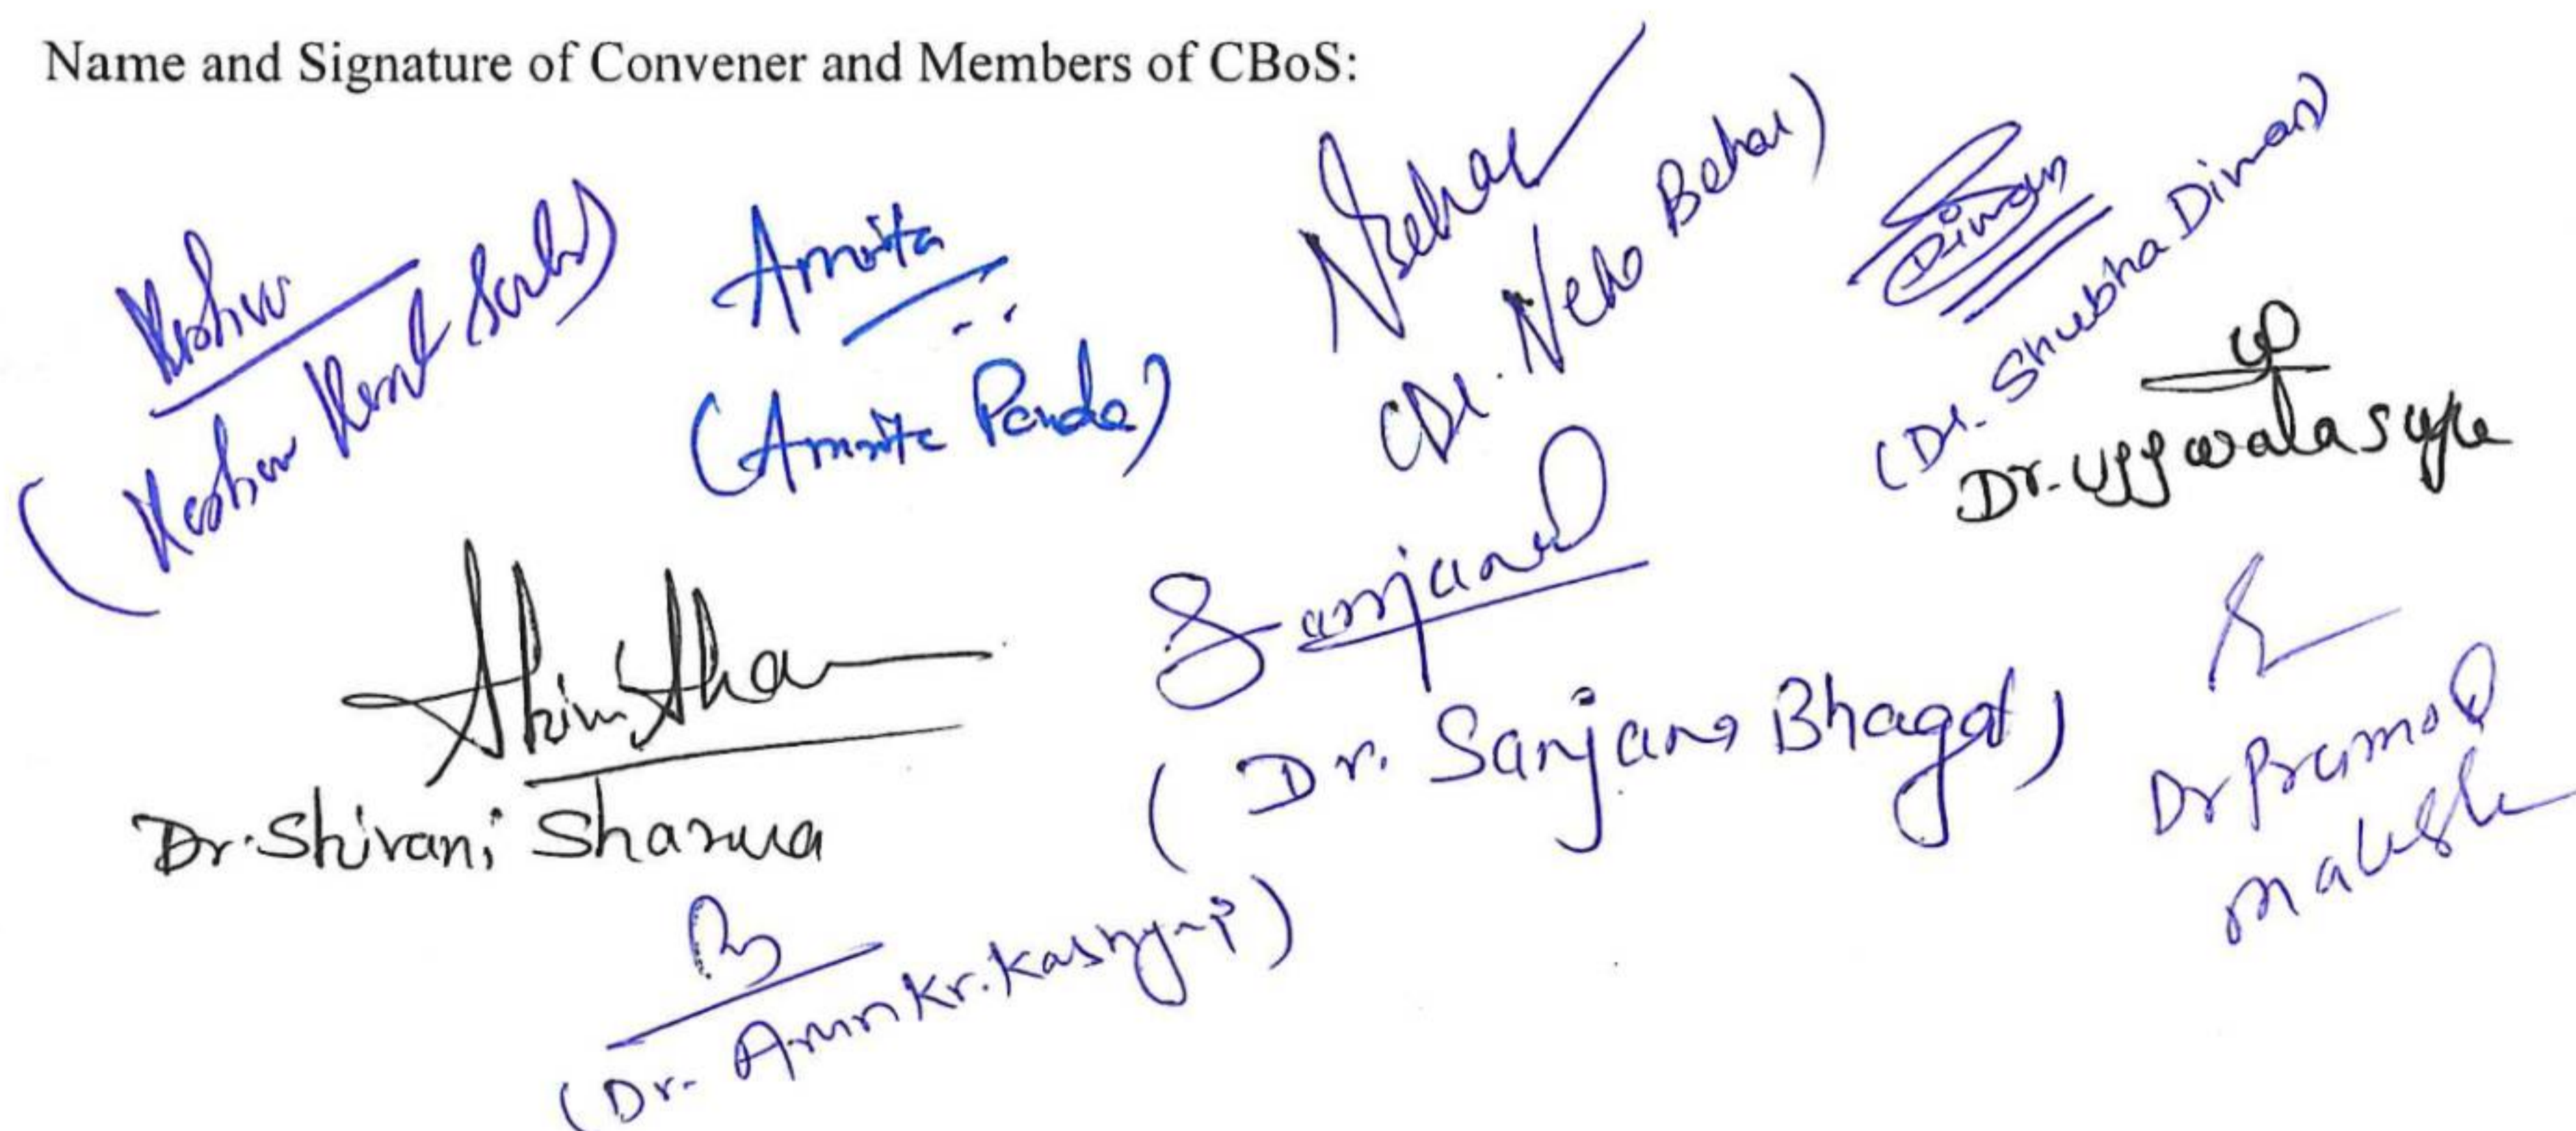 Name and Signature of Convener and Members of CBoS:
Keshav
(Keshav Kant Sahu)
Amrita
(Amrita Panda)
NBehar
(Dr. Neha Behar)
Diwan
(Dr. Shubha Diwan)
Dr. Ujjwala Supe
Dr. Shivani Sharma
Sanjana
(Dr. Sanjana Bhagat)
Dr Pramod
(Dr. Arun Kr. Kashyap)